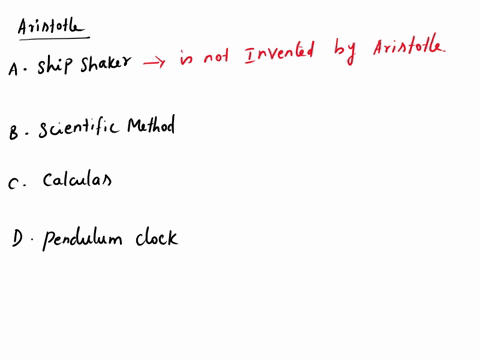 Aristotle
A. Ship Shaker → is not Invented by Aristotle.
B. Scientific Method
C. Calculas
D. pendulum clock